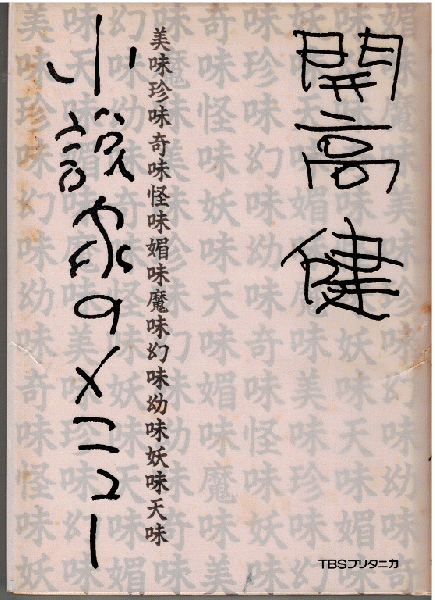 開高 健
美味珍味奇味怪味媚味魔味幻味幼味妖味天味
小説家のメニュー
TBSブリタニカ